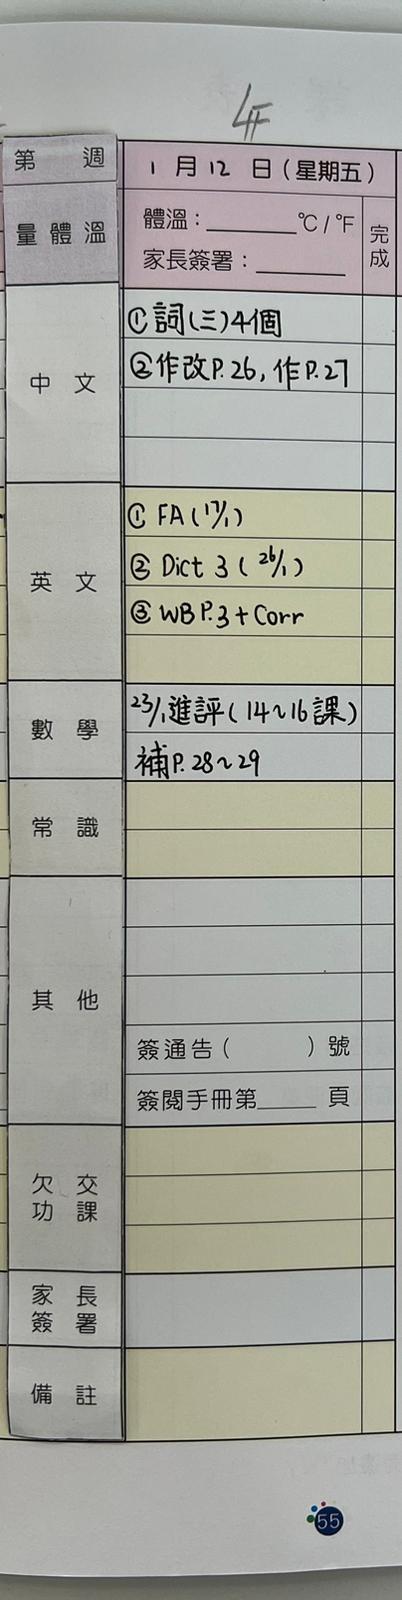 4F
第 週
1 月 12 日 (星期五)
量體溫
體溫：________℃ / ℉
家長簽署：________
完成
中 文
① 詞(三)4個
② 作改P.26, 作P.27
英 文
① FA (17/1)
② Dict 3 (26/1)
③ WB P.3 + Corr
數 學
23/1進評(14~16課)
補P.28~29
常 識
其 他
簽通告 ( ) 號
簽閱手冊第_____ 頁
欠 交
功 課
家 長
簽 署
備 註
55